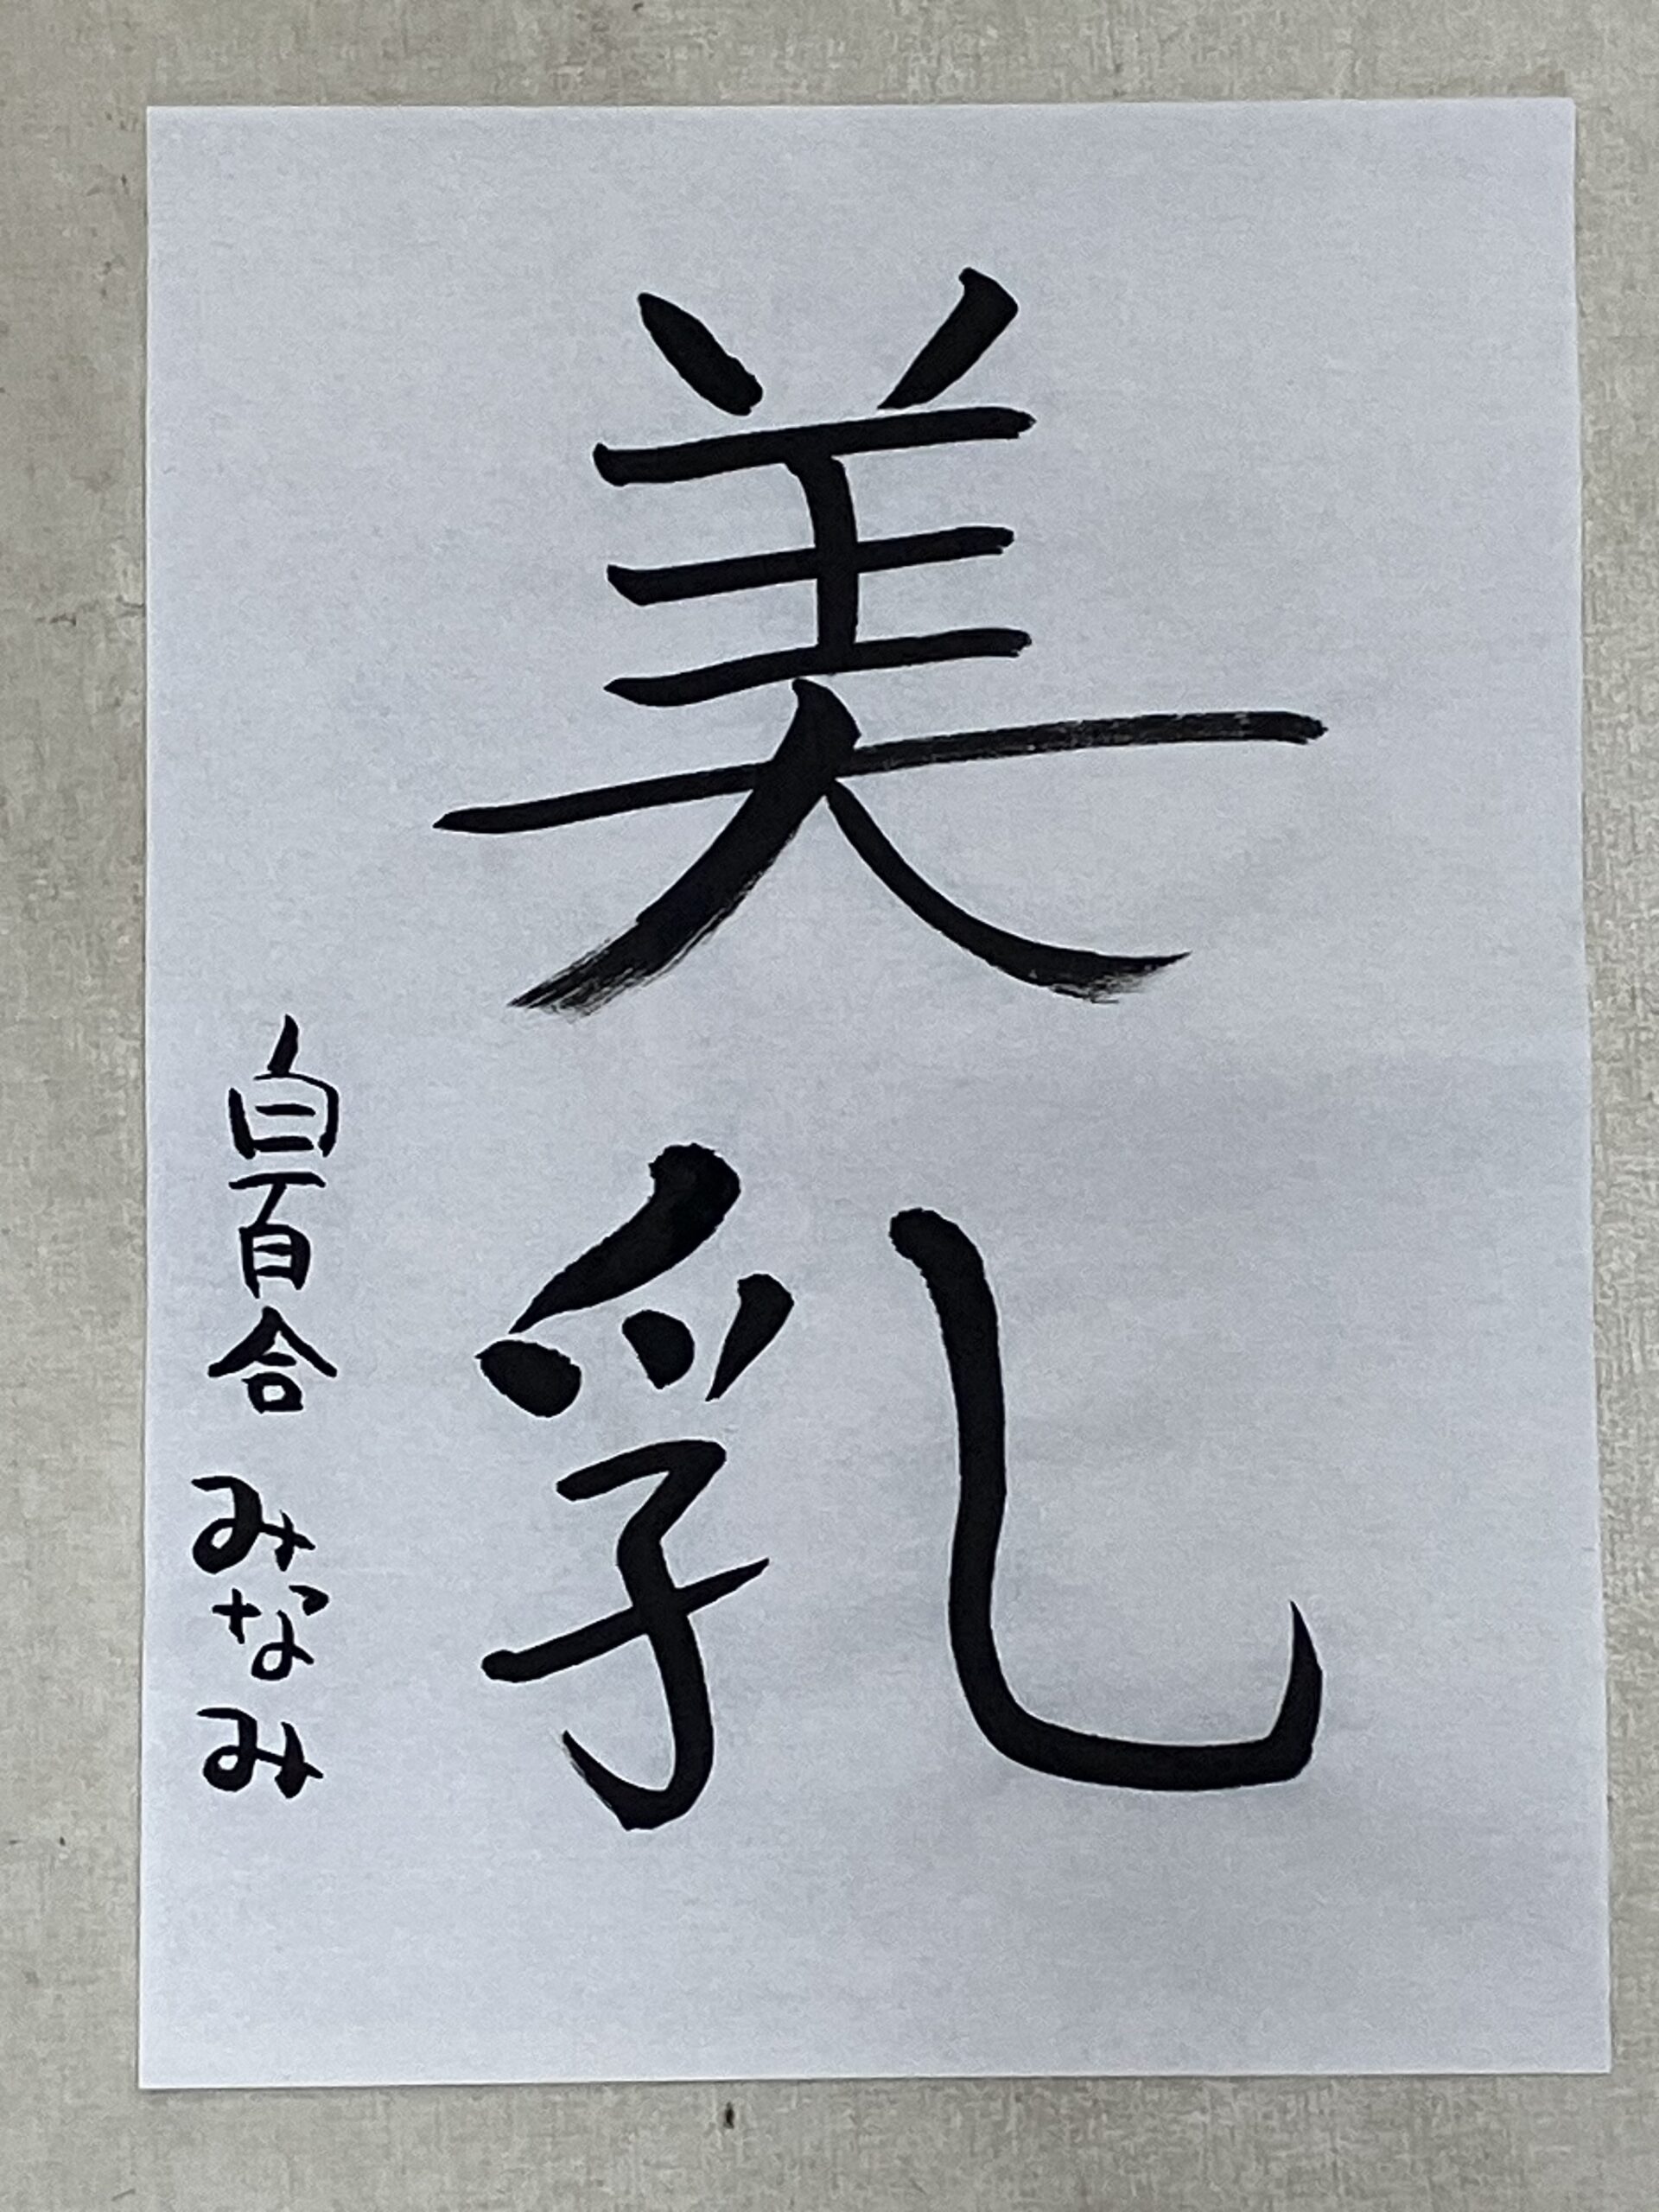 美乳
白百合 みなみ